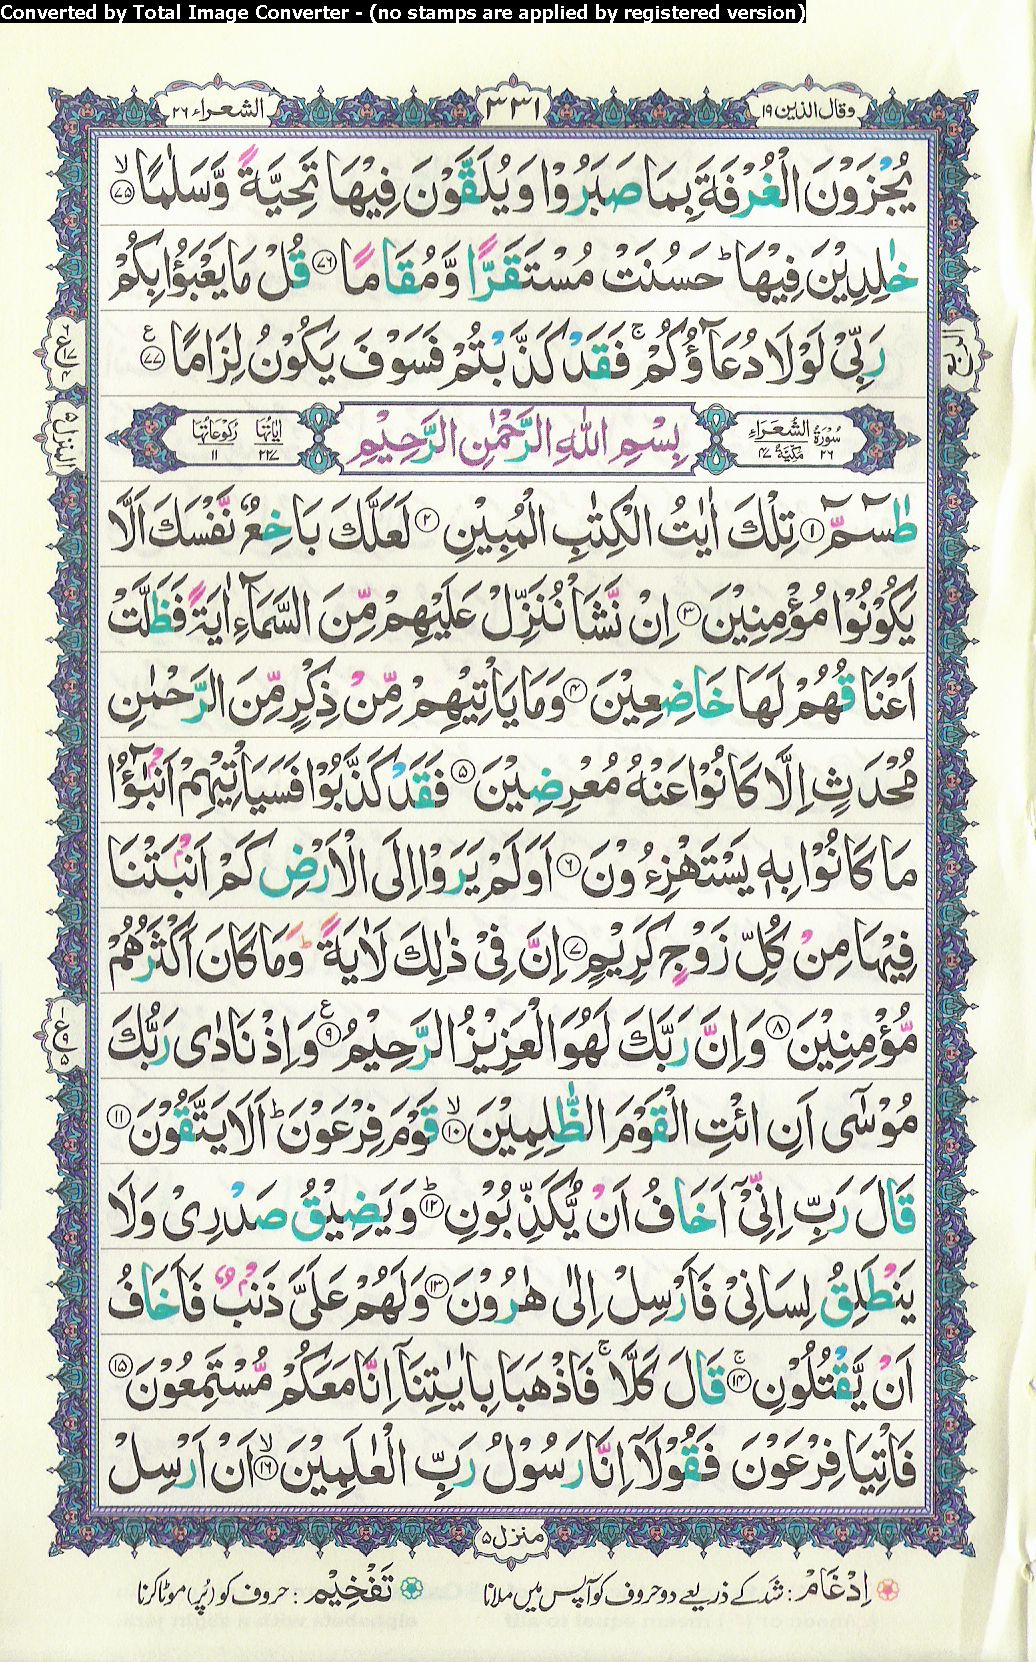 Converted by Total Image Converter - (no stamps are applied by registered version)
وقال الذین ١٩
٣٣١
الشعراء ٢٦
یُجْزَوْنَ الْغُرْفَةَ بِمَا صَبَرُوْا وَ یُلَقَّوْنَ فِیْهَا تَحِیَّةً وَّ سَلٰمًا ﴿۷۵﴾ۙ
خٰلِدِیْنَ فِیْهَا ؕ حَسُنَتْ مُسْتَقَرًّا وَّ مُقَامًا ﴿۷۶﴾ قُلْ مَا یَعْبَؤُا بِكُمْ
رَبِّیْ لَوْ لَا دُعَآؤُكُمْ ۚ فَقَدْ كَذَّبْتُمْ فَسَوْفَ یَكُوْنُ لِزَامًا ﴿۷۷﴾ ع
سُوْرَةُ الشُّعَرَآءِ ٢٦ مَكِّیَّةٌ ٤٧
بِسْمِ اللّٰهِ الرَّحْمٰنِ الرَّحِیْمِ
اٰیَاتُهَا ٢٢٧ رُكُوْعَاتُهَا ١١
طٰسٓمّٓ ﴿۱﴾ تِلْكَ اٰیٰتُ الْكِتٰبِ الْمُبِیْنِ ﴿۲﴾ لَعَلَّكَ بَاخِعٌ نَّفْسَكَ اَلَّا
یَكُوْنُوْا مُؤْمِنِیْنَ ﴿۳﴾ اِنْ نَّشَاْ نُنَزِّلْ عَلَیْهِمْ مِّنَ السَّمَآءِ اٰیَةً فَظَلَّتْ
اَعْنَاقُهُمْ لَهَا خَاضِعِیْنَ ﴿۴﴾ وَ مَا یَاْتِیْهِمْ مِّنْ ذِكْرٍ مِّنَ الرَّحْمٰنِ
مُحْدَثٍ اِلَّا كَانُوْا عَنْهُ مُعْرِضِیْنَ ﴿۵﴾ فَقَدْ كَذَّبُوْا فَسَیَاْتِیْهِمْ اَنْۢبٰٓؤُا
مَا كَانُوْا بِهٖ یَسْتَهْزِءُوْنَ ﴿۶﴾ اَوَ لَمْ یَرَوْا اِلَی الْاَرْضِ كَمْ اَنْۢبَتْنَا
فِیْهَا مِنْ كُلِّ زَوْجٍ كَرِیْمٍ ﴿۷﴾ اِنَّ فِیْ ذٰلِكَ لَاٰیَةً ؕ وَ مَا كَانَ اَكْثَرُهُمْ
مُّؤْمِنِیْنَ ﴿۸﴾ وَ اِنَّ رَبَّكَ لَهُوَ الْعَزِیْزُ الرَّحِیْمُ ﴿۹﴾ ع وَ اِذْ نَادٰی رَبُّكَ
مُوْسٰۤی اَنِ ائْتِ الْقَوْمَ الظّٰلِمِیْنَ ﴿۱۰﴾ۙ قَوْمَ فِرْعَوْنَ ؕ اَلَا یَتَّقُوْنَ ﴿۱۱﴾
قَالَ رَبِّ اِنِّیْۤ اَخَافُ اَنْ یُّكَذِّبُوْنِ ﴿۱۲﴾ؕ وَ یَضِیْقُ صَدْرِیْ وَ لَا
یَنْطَلِقُ لِسَانِیْ فَاَرْسِلْ اِلٰی هٰرُوْنَ ﴿۱۳﴾ وَ لَهُمْ عَلَیَّ ذَنْۢبٌ فَاَخَافُ
اَنْ یَّقْتُلُوْنِ ﴿۱۴﴾ۚ قَالَ كَلَّا ۚ فَاذْهَبَا بِاٰیٰتِنَاۤ اِنَّا مَعَكُمْ مُّسْتَمِعُوْنَ ﴿۱۵﴾
فَاْتِیَا فِرْعَوْنَ فَقُوْلَاۤ اِنَّا رَسُوْلُ رَبِّ الْعٰلَمِیْنَ ﴿۱۶﴾ۙ اَنْ اَرْسِلْ
منزل ۵
اِدْغَامْ : شد کے ذریعے دو حروف کو آپس میں ملانا تَفْخِیْم : حروف کو (پُر) موٹا کرنا